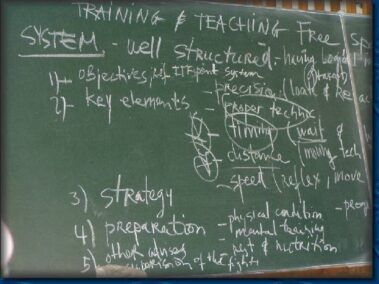 TRAINING & TEACHING Free
SYSTEM - well structured - having
1)- objectives, point system
2)- key elements - precision (
- proper techni
- timing (wait &
- distance (moving tech
- speed (reflex, move
3) strategy
4) preparation - physical condition
- mental training
- rest & nutrition
5) other advises
supervision of the fights